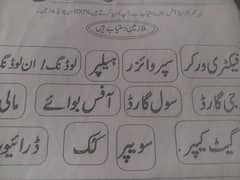 ملازمین دستیاب ہیں
فیکٹری ورکر سپروائزر ہیلپر لوڈنگ / ان لوڈنگ
جی گارڈ سول گارڈ آفس بوائے مالی
گیٹ کیپر سویپر کک ڈرائیور